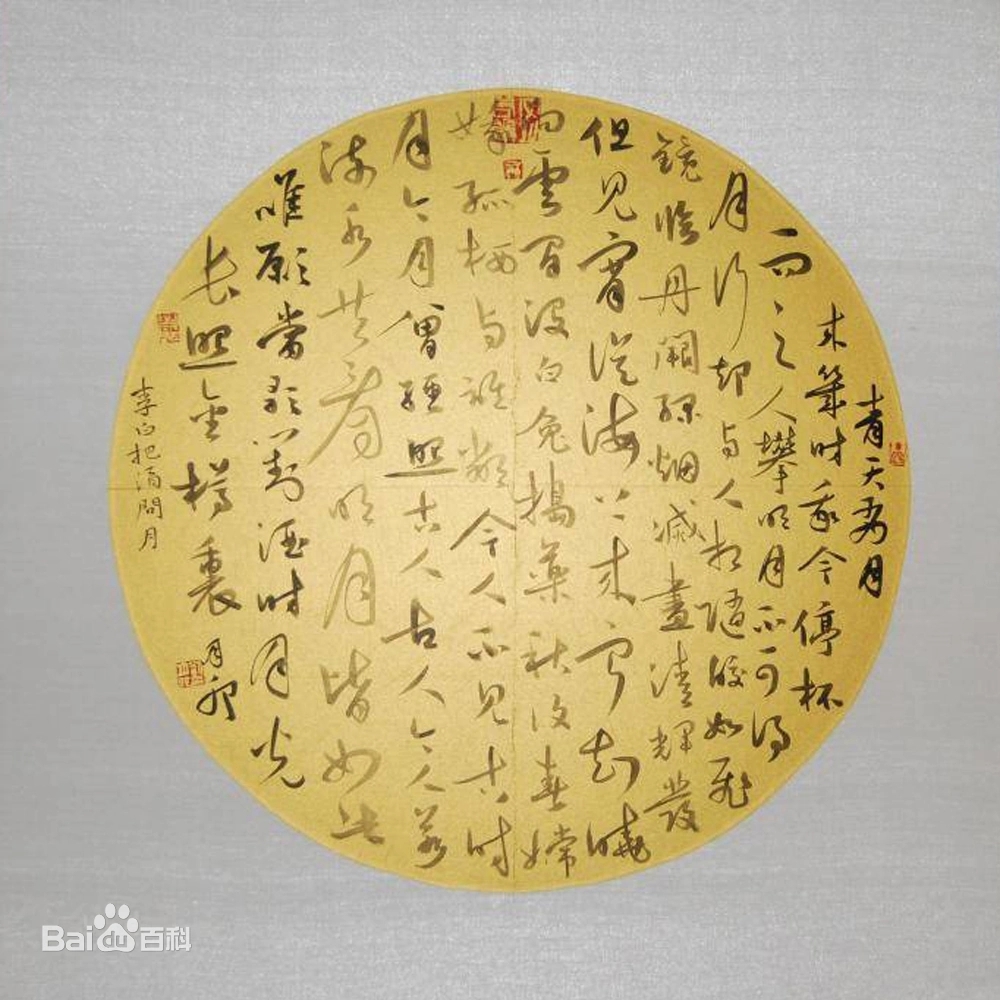 青天有月
来幾时我今停杯
一问之人攀明月不可得
月行却与人相随皎如飛
鏡临丹闕绿烟滅盡清輝發
但见宵从海上来宁知曉
向雲间没白兔搗藥秋复春嫦
娥孤栖与谁鄰今人不见古时
月今月曾经照古人古人今人若
流水共看明月皆如此
唯願當歌对酒时月光
长照金樽裏
李白把酒問月
Baidu百科